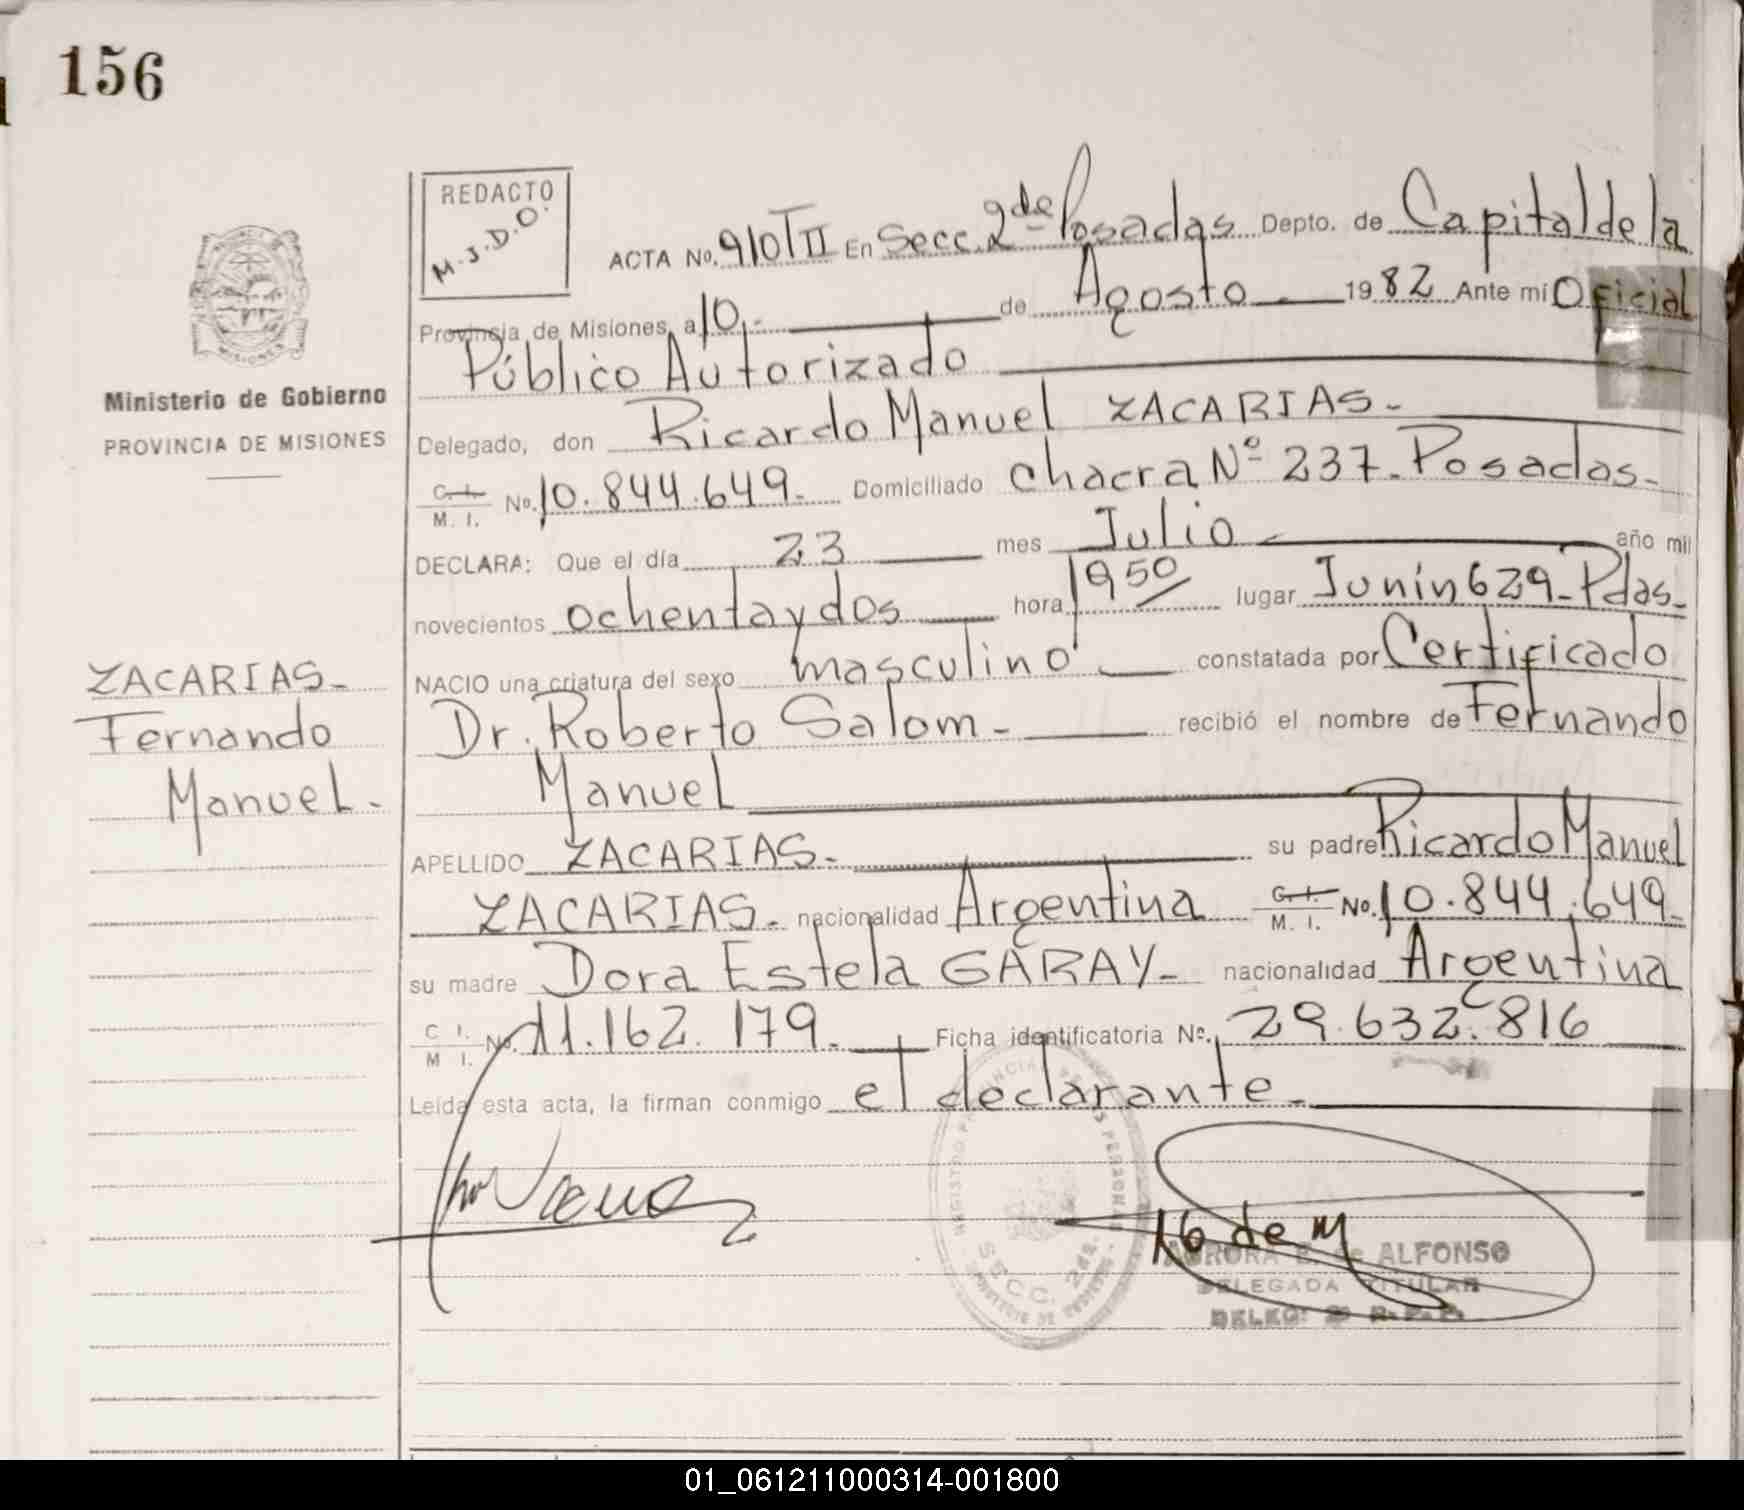 156
REDACTO
M.J.D.O.
ACTA No. 910 TII En Secc. 2da de Posadas Depto. de Capital de la
Provincia de Misiones, a 10.- de Agosto 1982 Ante mi Oficial
Público Autorizado
Ministerio de Gobierno
PROVINCIA DE MISIONES
MISIONES
Delegado, don Ricardo Manuel ZACARIAS.-
C. I. M. I. No. 10.844.649.- Domiciliado Chacra Nº 237.- Posadas.-
DECLARA: Que el día 23 mes Julio año mil
novecientos ochenta y dos hora 1950 lugar Junín 629-Pdas.-
NACIO una criatura del sexo masculino constatada por Certificado
Dr. Roberto Salom.- recibió el nombre de Fernando
Manuel
ZACARIAS-
Fernando
Manuel.-
APELLIDO ZACARIAS.- su padre Ricardo Manuel
ZACARIAS.- nacionalidad Argentina C. I. M. I. No. 10.844.649.-
su madre Dora Estela GARAY- nacionalidad Argentina
C I. M I. No. 11.162.179.- Ficha identificatoria Nº. 29.632.816
Leída esta acta, la firman conmigo el declarante.-
SECC. 2da.
AURORA E. de ALFONSO
DELEGADA TITULAR
01_061211000314-001800